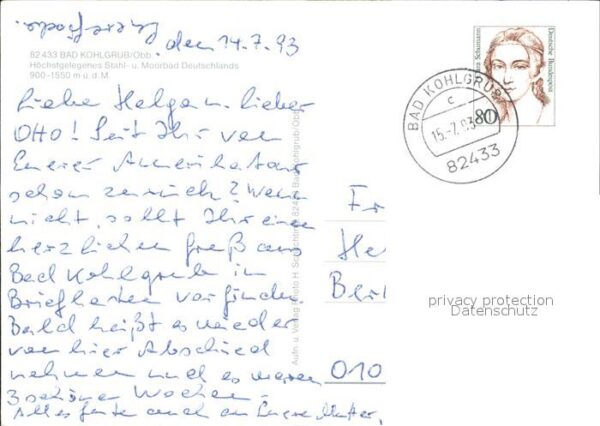 den 14.7.93
82 433 BAD KOHLGRUB/Obb.
Höchstgelegenes Stahl- u. Moorbad Deutschlands
900-1550 m ü. d. M.
Liebe Helga u. lieber
Otto! Seit Ihr von
Eurer Amerikatour
schon zurück? Wenn
nicht, sollt Ihr einen
herzlichen Gruß aus
Bad Kohlgrub im
Briefkasten vorfinden.
Bald heißt es wieder
von hier Abschied
nehmen und es waren
3 schöne Wochen.
Alles Gute auch an Eure Mutter,
Clara Schumann
Deutsche Bundespost
80
BAD KOHLGRUB
c
15.-7.93
82433
Fr
He
Berl
010
privacy protection
Datenschutz